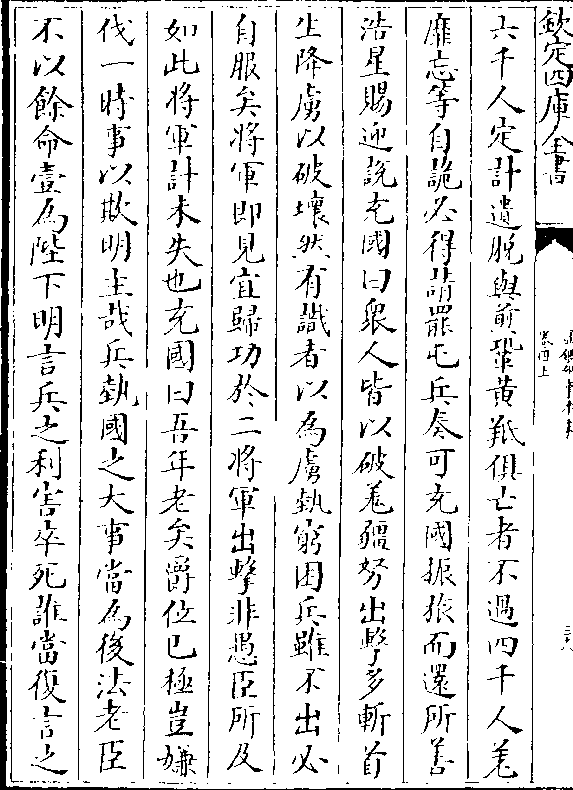 欽定四庫全書
卷四上
六千人定計遺脫與煎鞏黄羝俱亡者不過四千人羌
靡忘等自詭必得請罷屯兵奏可充國振旅而還所善
浩星賜迎說充國曰衆人皆以破羌彊弩出擊多斬首
生降虜以破壞然有識者以為虜埶窮困兵雖不出必
自服矣將軍即見宜歸功於二將軍出擊非愚臣所及
如此将軍計未失也充國曰吾年老矣爵位已極豈嫌
伐一時事以欺明主哉兵埶國之大事當為後法老臣
不以餘命壹為陛下明言兵之利害卒死誰當復言之